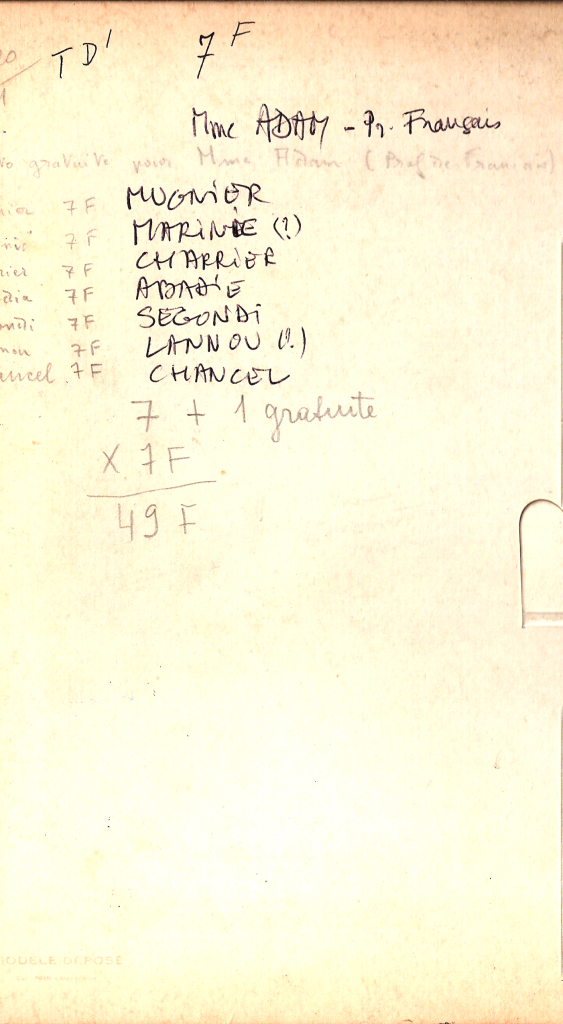 TD' 7 F
Mme ADAM - Pr. Français
gratuite pour Mme Adam (Prof de Français)
7 F MUGNIER
7 F MARINIE (?)
7 F CHARRIER
7 F ABADIE
7 F SEGONDI
7 F LANNOU (?)
7 F CHANCEL
7 + 1 gratuite
X 7 F
49 F
MODELE DEPOSE